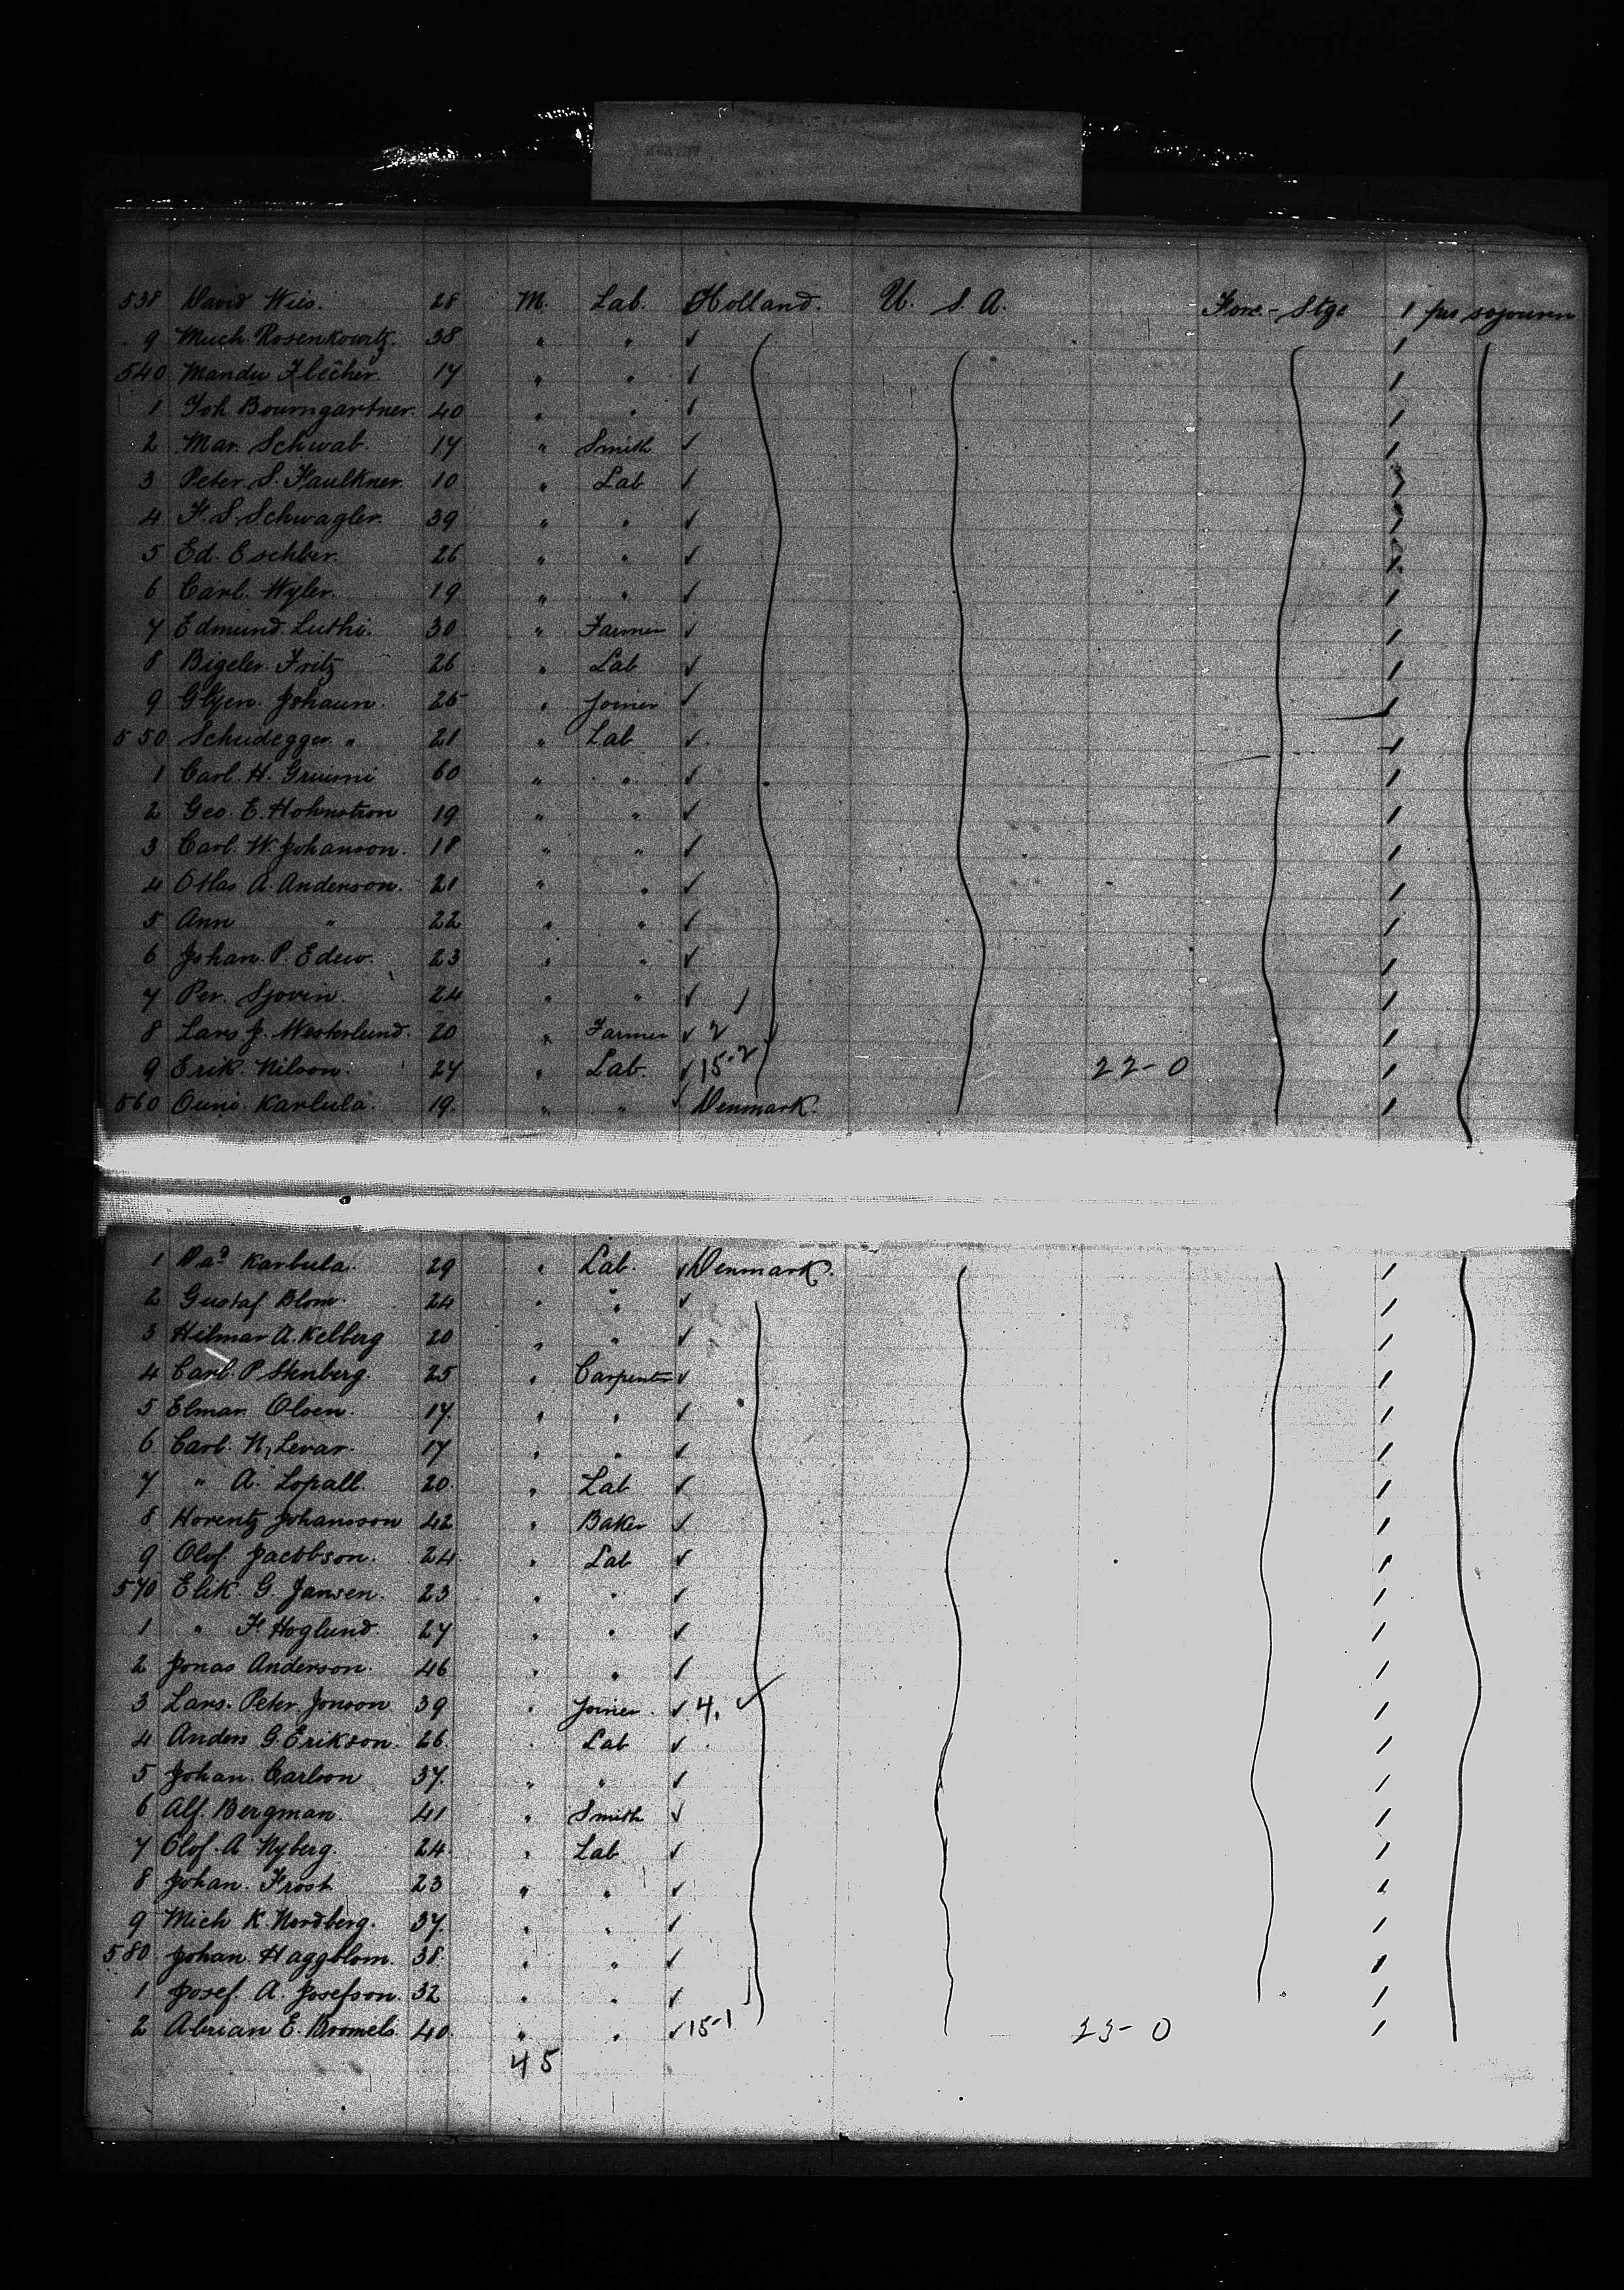 538 David Weis. 28 M. Lab. Holland. U. S. A. Fore - Stge 1 pro sojourn
9 Much. Rosenkowitz. 38 " " ✓ 1
540 Mandu Flecher. 17 " " ✓ 1
1 Joh Boumgartner. 40 " " ✓ 1
2 Mar. Schwab. 17 " Smith ✓ 1
3 Peter S. Faulkner. 10 " Lab ✓ 1
4 F. S. Schwagler. 39 " " ✓ 1
5 Ed. Eschber. 26 " " ✓ 1
6 Carl. Wyler. 19 " " ✓ 1
7 Edmund. Luthi. 30 " Farmer ✓ 1
8 Bigeler. Fritz 26 " Lab ✓ 1
9 Johaun. 25 " Joiner ✓ 1
550 Scheidegger. " 21 " Lab ✓ 1
1 Carl. H. 60 " " ✓ 1
2 Geo. E. Hohnstron 19 " " ✓ 1
3 Carl. W. Johanson. 18 " " ✓ 1
4 Otlas A. Anderson. 21 " " ✓ 1
5 Ann " 22 " " ✓ 1
6 Johan. P. Edew. 23 " " ✓ 1
7 Per. Sjovin. 24 " " ✓ 1
8 Lars J. Westerlund. 20 " Farmer ✓ 2 1
9 Erik. Nilson. 27 " Lab. ✓ 15-2 22-0 1
560 Karlula. 19. " " ✓ Denmark. 1
1 Karbula. 29 " Lab. ✓ Denmark. 1
2 Gustaf. Blom. 24 " " ✓ 1
3 Hilmar A. Kelberg 20 " " ✓ 1
4 Carl. P. Stenberg. 25 " Carpenter ✓ 1
5 Elmar. Olsen. 17. " " ✓ 1
6 Carl. N, Levar. 17 " " ✓ 1
7 " A. Lopall. 20. " Lab ✓ 1
8 Horentz Johansson 42 " Baker ✓ 1
9 Olof. Jacobson. 24. " Lab ✓ 1
570 Elik. G. Jansen. 23 " " ✓ 1
1 " F. Hoglund. 27 " " ✓ 1
2 Jonas Anderson. 46 " " ✓ 1
3 Lars. Peter Jonson 39 " Joiner. ✓ 4. ✓ 1
4 Anders G. Erikson. 26. " Lab ✓ 1
5 Johan. Carlson 37. " " ✓ 1
6 Alf. Bergman. 41 " Smith ✓ 1
7 Olof. A Nyberg. 24. " Lab ✓ 1
8 Johan. Frost 23 " " ✓ 1
9 Mich K. Nordberg. 37. " " ✓ 1
580 Johan. Haggblom. 38. " " ✓ 1
1 Josef. A. Josefson. 32 " " ✓ 1
2 Abrian E. Bromels 40. " " ✓ 15-1 23-0 1
45